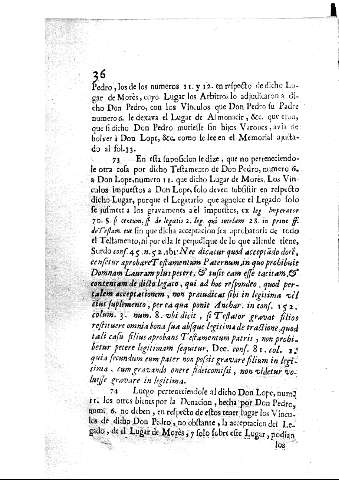 36
Pedro, los de los numeros 11. y 12. en respecto de dicho Lu-
gar de Morès, cuyo Lugar los Arbitros lo adjudicaron a di-
cho Don Pedro, con los Vinculos que Don Pedro su Padre
numero 6. le dexava el Lugar de Almonacir, &c. que eran,
que si dicho Don Pedro muriesse sin hijos Varones, avia de
bolver à Don Lope, &c. como se lee en el Memorial ajusta-
do al fol. 33.
73 En esta suposicion se dize, que no perteneciendo-
le otra cosa por dicho Testamento de Don Pedro, numero 6.
a Don Lope, numero 11. que dicho Lugar de Morès, Los Vin-
culos impuestos a Don Lope, solo deven subsistir en respecto
dicho Lugar, porque el Legatario que agnosce el Legado solo
se sujmeta a los gravamenes a èl impuestos, ex leg Imperator
70. §. si centum. ff. de legatis 2. leg. qui mortem 28. in princ. ff.
de Testam. ex sin que dicha acceptacion sea aprobatoria de todo
el Testamento, ni por ella le perjudique de lo que alliunde tiene,
Surdo cons. 45. n. 52. ibi: Nec dicatur quod acceptādo dotē,
censetur aprobare Testamentum Paternum, in quo prohibuit
Domnam Lauram plus petere, & iusit eam esse tacitam, &
contentam de dicto legato, qui ad hoc respondeo, quod per
talem acceptationem, non præiudicat sibi in legitima vel
eius suplemento, per ea quæ ponit Anchar. in cons. 152.
colum. 3. num. 8. vbi dicit, si Testator gravat filios
restituere omnia bona sua absque legitima detractione, quod
tali casu filius aprobans Testamentum patris, non prohi-
betur petere legitimam sequitur, Dec. cons. 81. col. 2.
quia secundum eum pater non possit gravare filium in legi-
tima, cum gravando onere fideicomissi, non videtur vo-
luisse gravare in legitima.
74 Luego perteneciendole al dicho Don Lope, num.
11. los otros bienes por la Donacion, hecha por Don Pedro,
num. 6. no deben, en respecto de estos tener lugar los Vincu-
los de dicho Don Pedro, no obstante, la acceptacion del Le-
gado, de el Lugar de Morès, y solo sobre este Lugar, podian
los